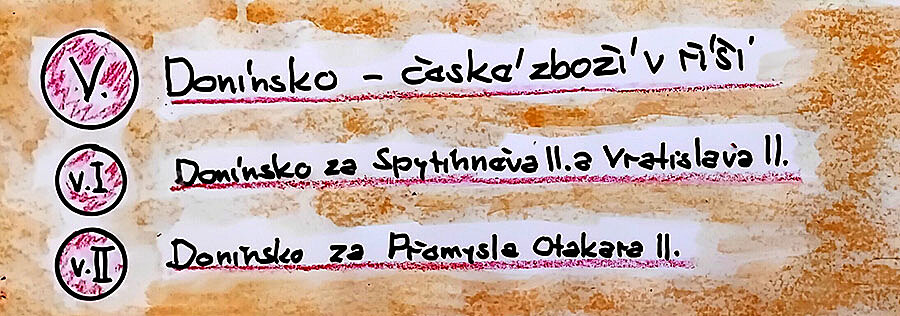 V. Donínsko – česká zboží v říši
v.I Donínsko za Spytihněva II. a Vratislava II.
v.II Donínsko za Přemysla Otakara II.